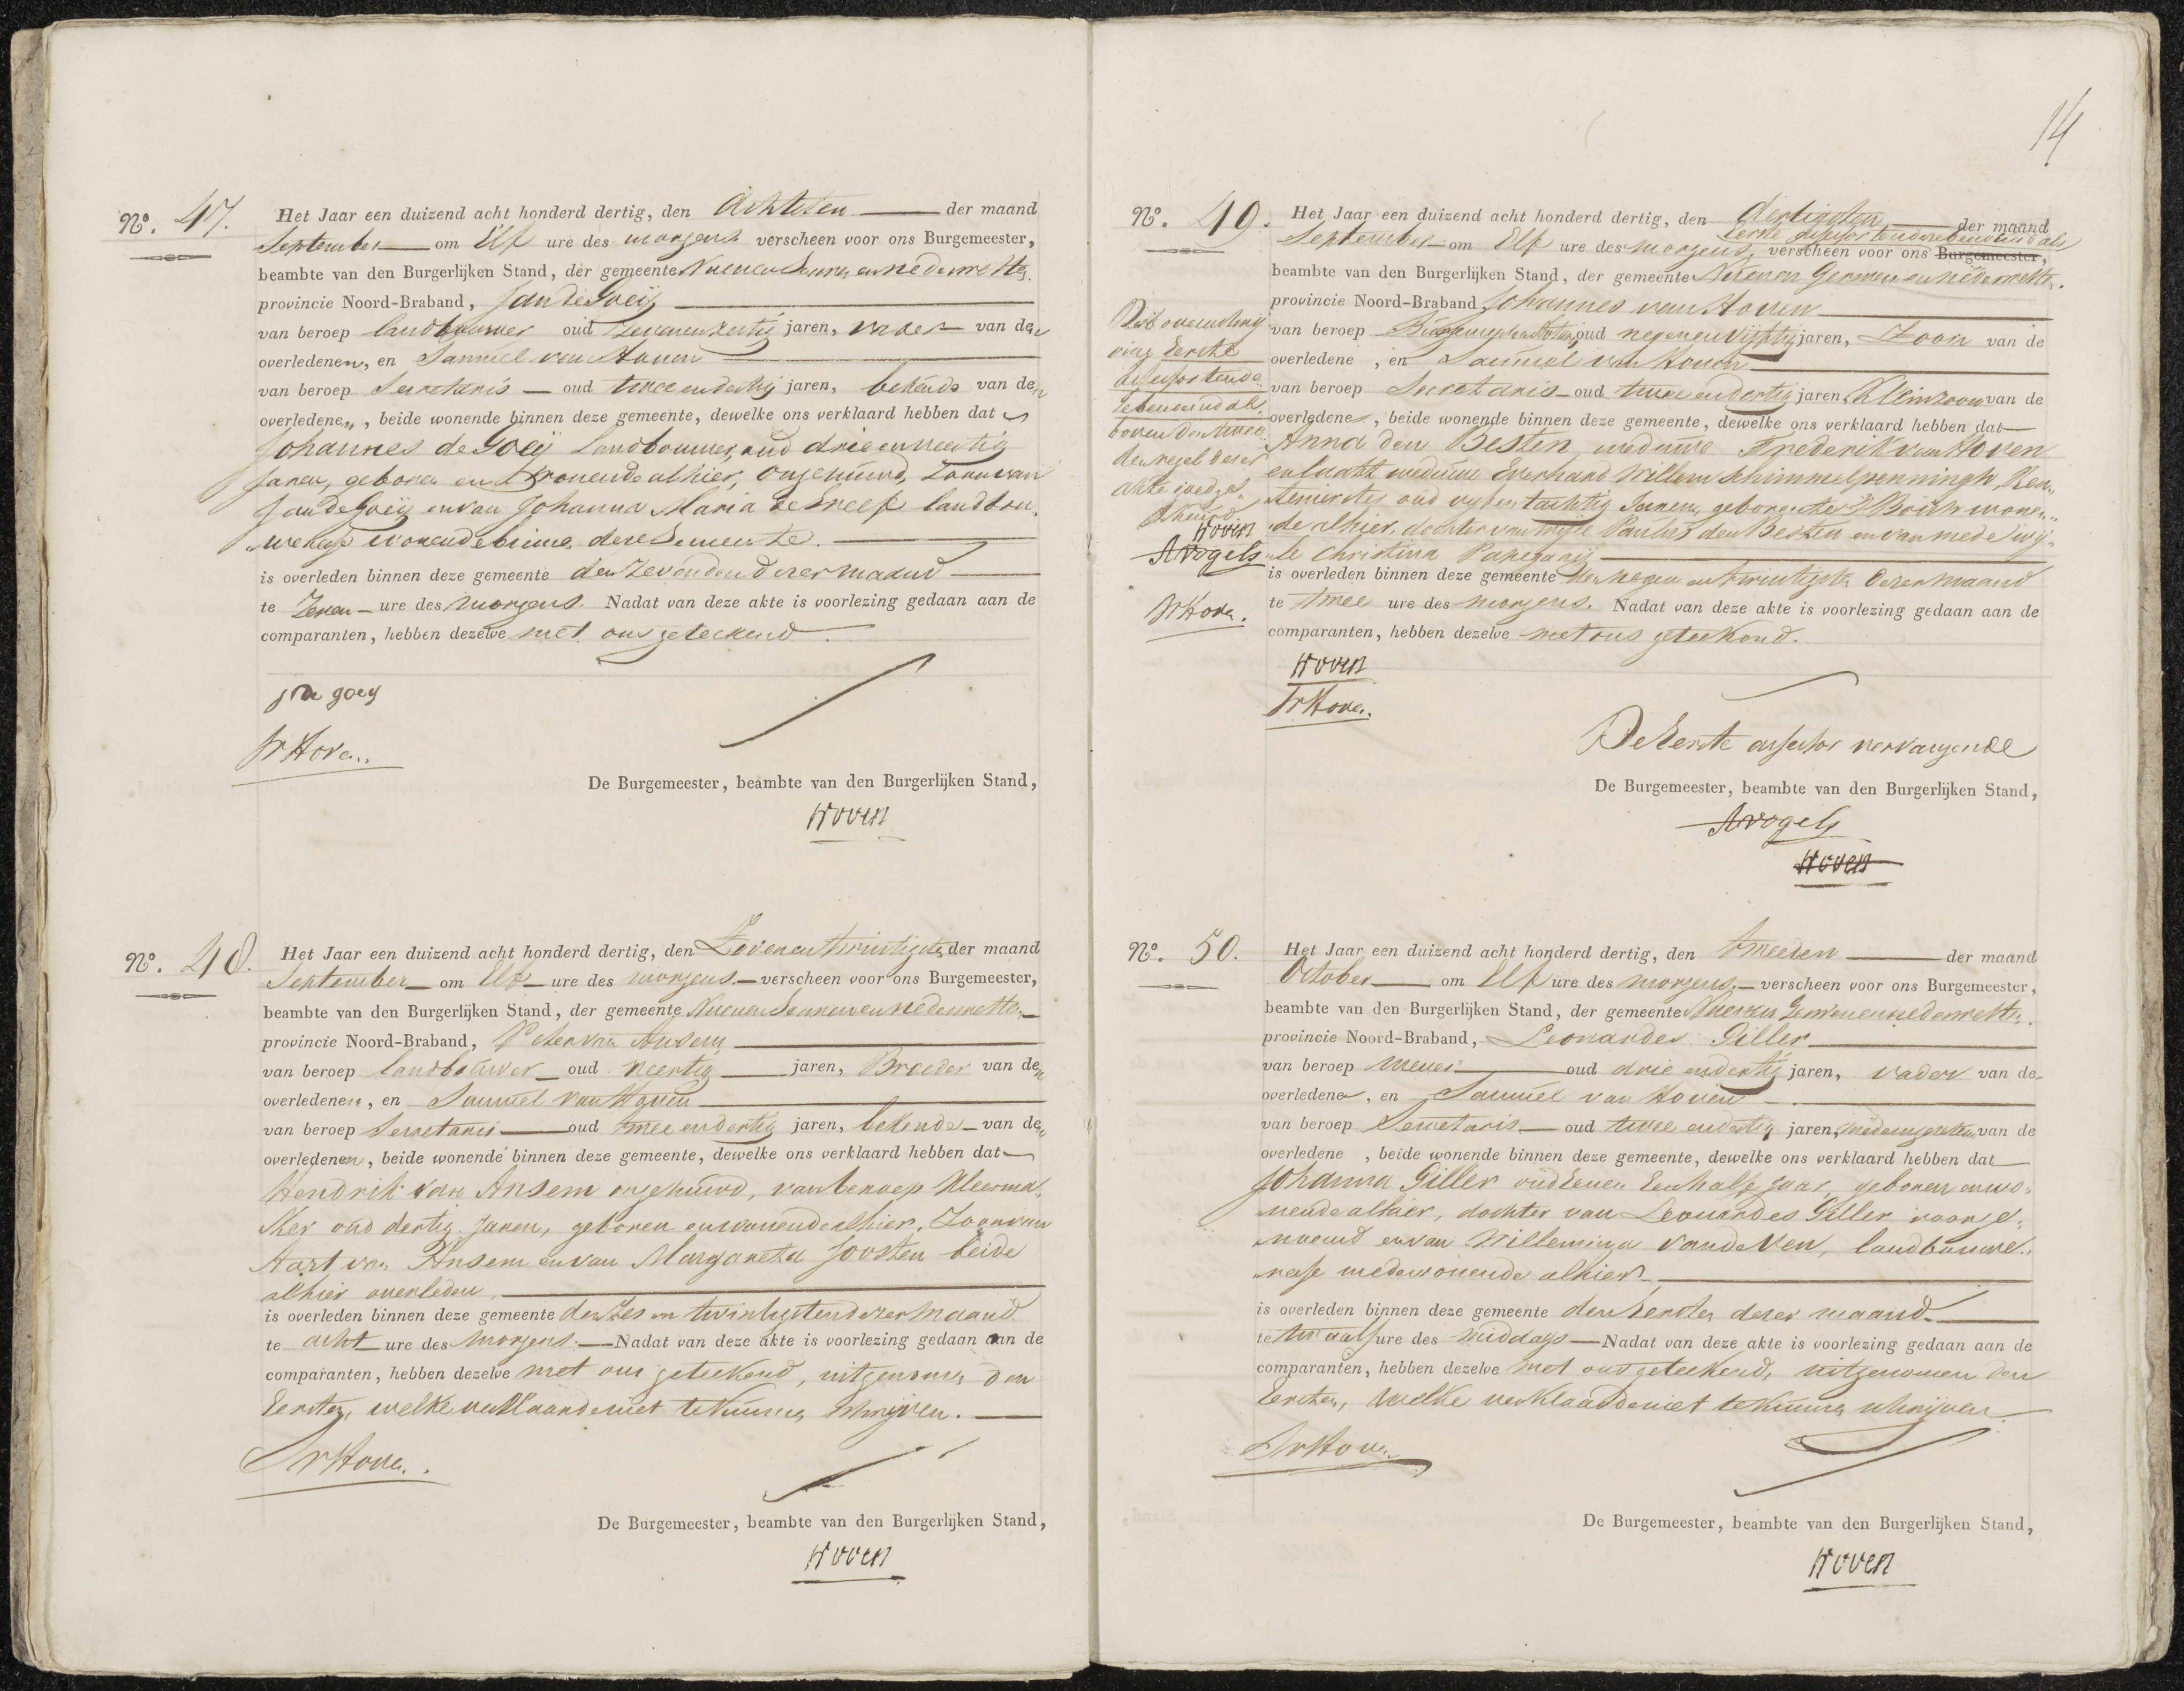 No. 47.
Het Jaar een duizend acht honderd dertig, den Achtsten der maand
September om Elf ure des morgens verscheen voor ons Burgemeester,
beambte van den Burgerlijken Stand, der gemeente Nuenen Gerwen en nederwetten
provincie Noord-Braband, Jan de Goeij
van beroep landbouwer oud jaren, vader van den
overledenen, en Samuel van Hoven
van beroep Secretaris oud twee en dertig jaren, bekende van den
overledenen, beide wonende binnen deze gemeente, dewelke ons verklaard hebben dat
Johannes de Goeij Landbouwer, oud drie en veertig
Jaren, geboren en wonende alhier, ongehuuwd, Zoon van
Jan de Goeij en van Johanna Maria de Greef landbou„
„wers wonende binne deze Gemeente.
is overleden binnen deze gemeente den Zevenden dezer maand
te Zeven ure des morgens. Nadat van deze akte is voorlezing gedaan aan de
comparanten, hebben dezelve met ons geteekend.
J de goeij
SvHoven
De Burgemeester, beambte van den Burgerlijken Stand,
Hoven
No. 48.
Het Jaar een duizend acht honderd dertig, den Zeven en twintigsten der maand
September om Elf ure des morgens. verscheen voor ons Burgemeester,
beambte van den Burgerlijken Stand, der gemeente Nuenen Gerwen en nederwetten
provincie Noord-Braband, Peter van Ansem
van beroep landbouwer oud veertig jaren, Broeder van den
overledenen, en Samuel van Hoven
van beroep Secretaris oud twee en dertig jaren, bekende van den
overledenen, beide wonende binnen deze gemeente, dewelke ons verklaard hebben dat
Hendrik van Ansem ongehuuwd, van beroep Kleerma„
Ker oud dertig Jaren, geboren en wonende alhier, Zoon van
Aart van Ansem en van Margareta Joosten beide
alhier overleden,
is overleden binnen deze gemeente den Zes en twintigsten dezer maand
te acht ure des morgens. Nadat van deze akte is voorlezing gedaan aan de
comparanten, hebben dezelve met ons geteekend, uitgenomen den
Eersten, welke verklaarde niet te kunnen schrijven.
SvHoven
De Burgemeester, beambte van den Burgerlijken Stand,
Hoven
14
No. 49.
Het Jaar een duizend acht honderd dertig, den dertigsten der maand
eerste assessor ten deze
September om Elf ure des morgens, verscheen voor ons Burgemeester,
beambte van den Burgerlijken Stand, der gemeente Nuenen Gerwen en nederwetten.
provincie Noord-Braband Johannes van Hoven
van beroep Burgemeester Notaris oud negen en vijftig jaren, Zoon van de
overledene, en Samuel van Hoven
van beroep Secretaris oud twee en dertig jaren, Kleinzoon van de
overledene, beide wonende binnen deze gemeente, dewelke ons verklaard hebben dat
Anna den Besten, weduwe Frederik van Hoven
en laatst weduwe Everhard Willem Schimmelpenningh, Ren„
tenierster oud tachtig Jaren, geboren te s'Bosch wonen„
de alhier, dochter van wijle Paulus den Besten en van mede wij„
le Christina
is overleden binnen deze gemeente den negen en twintigsten dezer maand
te twee ure des morgens. Nadat van deze akte is voorlezing gedaan aan de
comparanten, hebben dezelve met ons geteekend.
Eerste
boven den twee
den regel dezer
akte goedge„
keurd
Hoven
AVogels
SvHoven
Hoven
SvHoven
De Eerste assessor vervangende
De Burgemeester, beambte van den Burgerlijken Stand,
AVogels
Hoven
No. 50.
Het Jaar een duizend acht honderd dertig, den tweeden der maand
October om Elf ure des morgens, verscheen voor ons Burgemeester,
beambte van den Burgerlijken Stand, der gemeente Nuenen Gerwen en nederwetten.
provincie Noord-Braband, Leonardes Giller
van beroep wever oud drie en dertig jaren, vader van de
overledene, en Samuel van Hoven
van beroep Secretaris oud twee en dertig jaren, medeingeseten van de
overledene, beide wonende binnen deze gemeente, dewelke ons verklaard hebben dat
Johanna Giller oud Eenen Een half Jaar, geboren en wo„
nende alhier, dochter van Leonardes Giller voorge„
noemd en van Willemina van de Ven, landbouwe„
resse mede wonende alhier
is overleden binnen deze gemeente den Eersten dezer maand.
te twaalf ure des middags Nadat van deze akte is voorlezing gedaan aan de
comparanten, hebben dezelve met ons geteekend, uitgenomen den
Eersten, welke verklaarde niet te kunnen schrijven
SvHoven
De Burgemeester, beambte van den Burgerlijken Stand,
Hoven